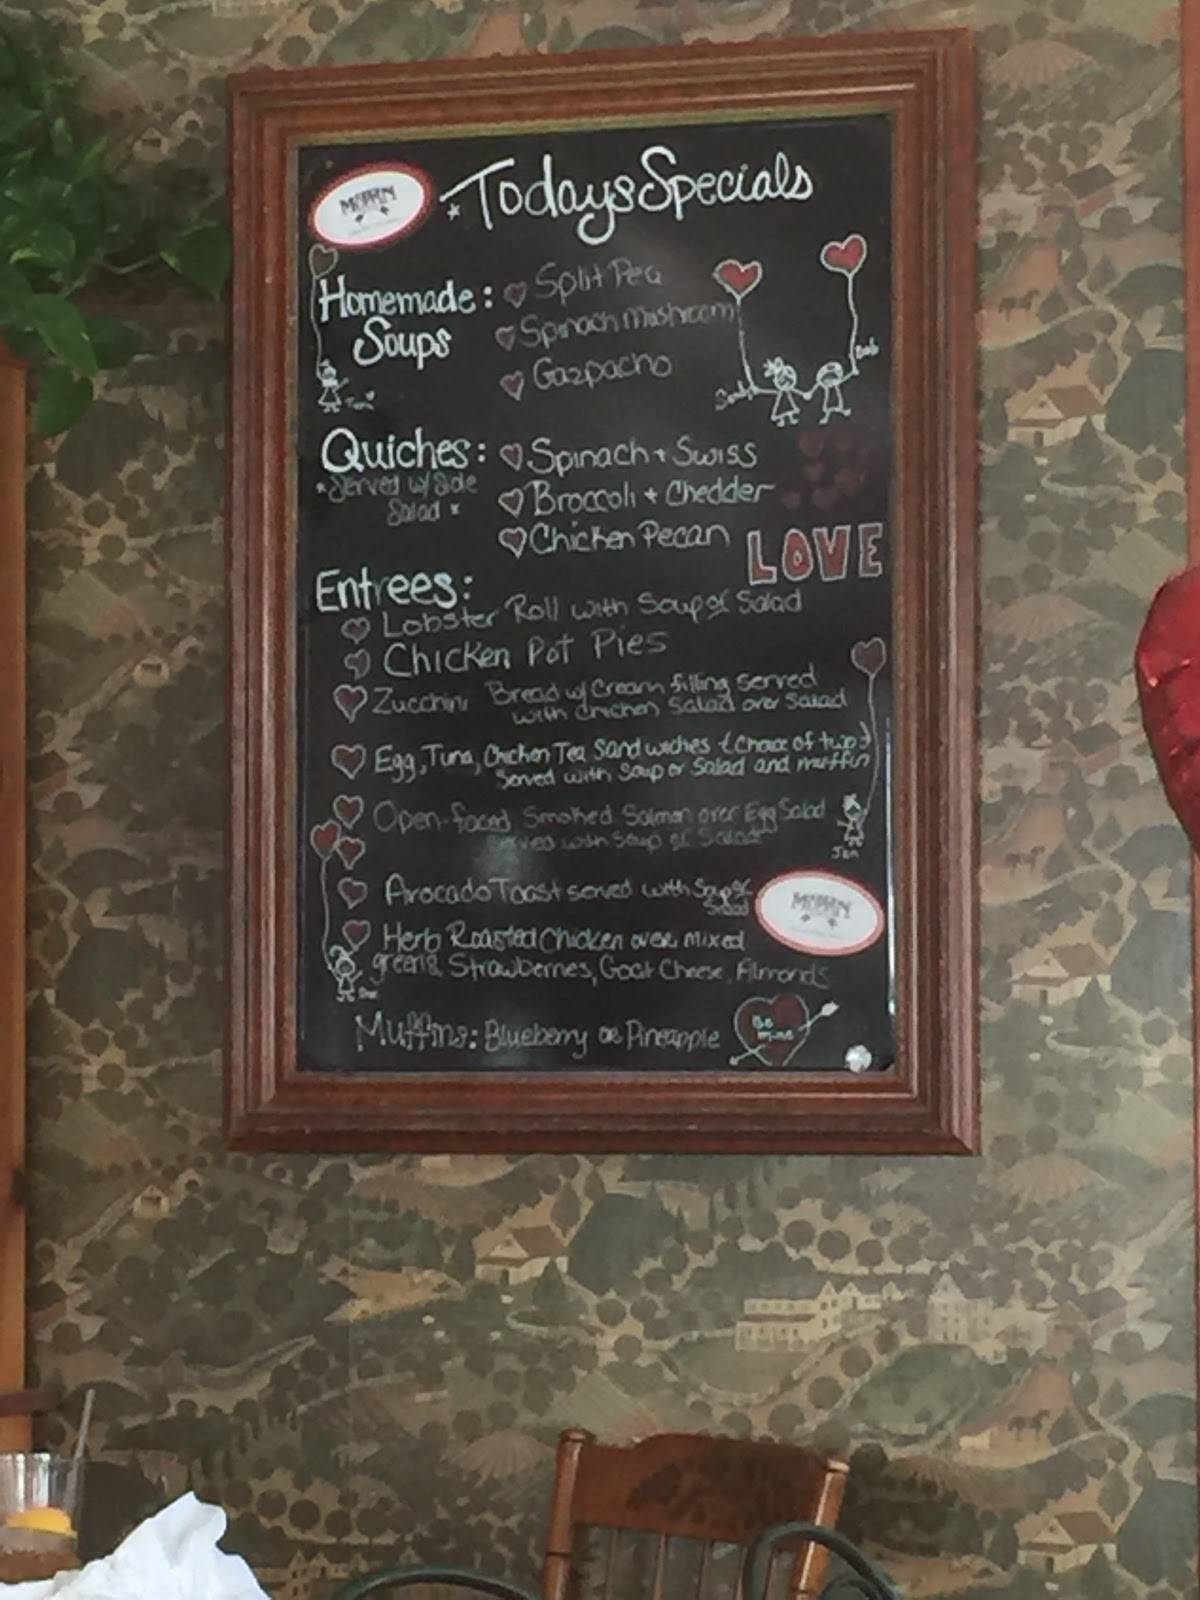 Todays Specials
Homemade Soups:
Split Pea
Spinach Mushroom
Gazpacho
Bob
Quiches:
*Served w/ Side
Salad *
Spinach + Swiss
Broccoli + Chedder
Chicken Pecan
LOVE
Entrees:
Lobster Roll with Soup or Salad
Chicken Pot Pies
Zucchini Bread w/ Cream filling served
with Chicken Salad over Salad
Egg, Tuna, Chicken Tea Sandwiches {Choice of two}
Served with Soup or Salad and muffin
Open-faced Smoked Salmon over Egg Salad
Served with Soup or Salad
Jen
Avocado Toast served with Soup or
Salad
Herb Roasted Chicken over mixed
greens, Strawberries, Goat Cheese, Almonds
Muffins: Blueberry or Pineapple
Be
mine